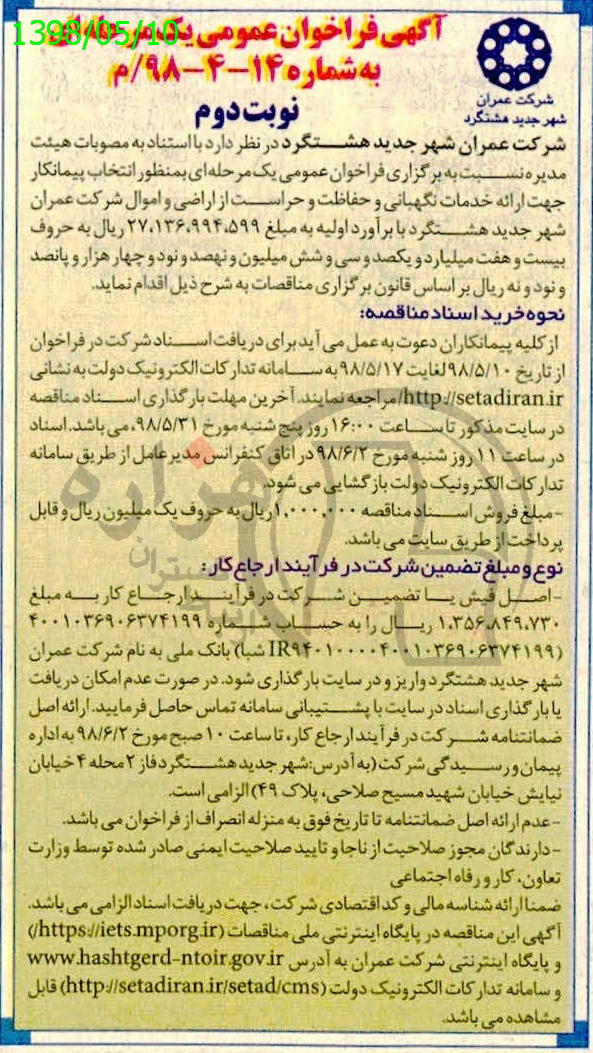 1398/05/10
آگهی فراخوان عمومی یک مرحله‌ای
به شماره ۱۴-۴-۹۸/م
نوبت دوم
شرکت عمران
شهر جدید هشتگرد
شرکت عمران شهر جدید هشتگرد در نظر دارد با استناد به مصوبات هیئت
مدیره نسبت به برگزاری فراخوان عمومی یک مرحله‌ای بمنظور انتخاب پیمانکار
جهت ارائه خدمات نگهبانی و حفاظت و حراست از اراضی و اموال شرکت عمران
شهر جدید هشتگرد با برآورد اولیه به مبلغ ۲۷،۱۳۶،۹۹۴،۵۹۹ ریال به حروف
بیست و هفت میلیارد و یکصد و سی و شش میلیون و نهصد و نود و چهار هزار و پانصد
و نود و نه ریال بر اساس قانون برگزاری مناقصات به شرح ذیل اقدام نماید.
نحوه خرید اسناد مناقصه:
از کلیه پیمانکاران دعوت به عمل می آید برای دریافت اسناد شرکت در فراخوان
از تاریخ ۹۸/۵/۱۰ لغایت ۹۸/۵/۱۷ به سامانه تدارکات الکترونیک دولت به نشانی
http://setadiran.ir/ مراجعه نمایند. آخرین مهلت بارگذاری اسناد مناقصه
در سایت مذکور تا ساعت ۱۶:۰۰ روز پنج شنبه مورخ ۹۸/۵/۳۱، می باشد. اسناد
در ساعت ۱۱ روز شنبه مورخ ۹۸/۶/۲ در اتاق کنفرانس مدیرعامل از طریق سامانه
تدارکات الکترونیک دولت بازگشایی می شود.
-مبلغ فروش اسناد مناقصه ۱،۰۰۰،۰۰۰ ریال به حروف یک میلیون ریال و قابل
پرداخت از طریق سایت می باشد.
نوع و مبلغ تضمین شرکت در فرآیند ارجاع کار:
-اصل فیش یا تضمین شرکت در فرآیند ارجاع کار به مبلغ
۱،۳۵۶،۸۴۹،۷۳۰ ریال را به حساب شماره ۴۰۰۱۰۳۶۹۰۶۳۷۴۱۹۹
(IR۹۴۰۱۰۰۰۰۴۰۰۱۰۳۶۹۰۶۳۷۴۱۹۹ شبا) بانک ملی به نام شرکت عمران
شهر جدید هشتگرد واریز و در سایت بارگذاری شود. در صورت عدم امکان دریافت
یا بارگذاری اسناد در سایت با پشتیبانی سامانه تماس حاصل فرمایید. ارائه اصل
ضمانتنامه شرکت در فرآیند ارجاع کار، تا ساعت ۱۰ صبح مورخ ۹۸/۶/۲ به اداره
پیمان و رسیدگی شرکت (به آدرس: شهر جدید هشتگرد فاز ۲ محله ۴ خیابان
نیایش خیابان شهید مسیح صلاحی، پلاک ۴۹) الزامی است.
-عدم ارائه اصل ضمانتنامه تا تاریخ فوق به منزله انصراف از فراخوان می باشد.
-دارندگان مجوز صلاحیت از ناجا و تایید صلاحیت ایمنی صادر شده توسط وزارت
تعاون، کار و رفاه اجتماعی
ضمنا ارائه شناسه مالی و کد اقتصادی شرکت، جهت دریافت اسناد الزامی می باشد.
آگهی این مناقصه در پایگاه اینترنتی ملی مناقصات (https://iets.mporg.ir/)
و پایگاه اینترنتی شرکت عمران به آدرس www.hashtgerd-ntoir.gov.ir
و سامانه تدارکات الکترونیک دولت (http://setadiran.ir/setad/cms) قابل
مشاهده می باشد.
هزاره